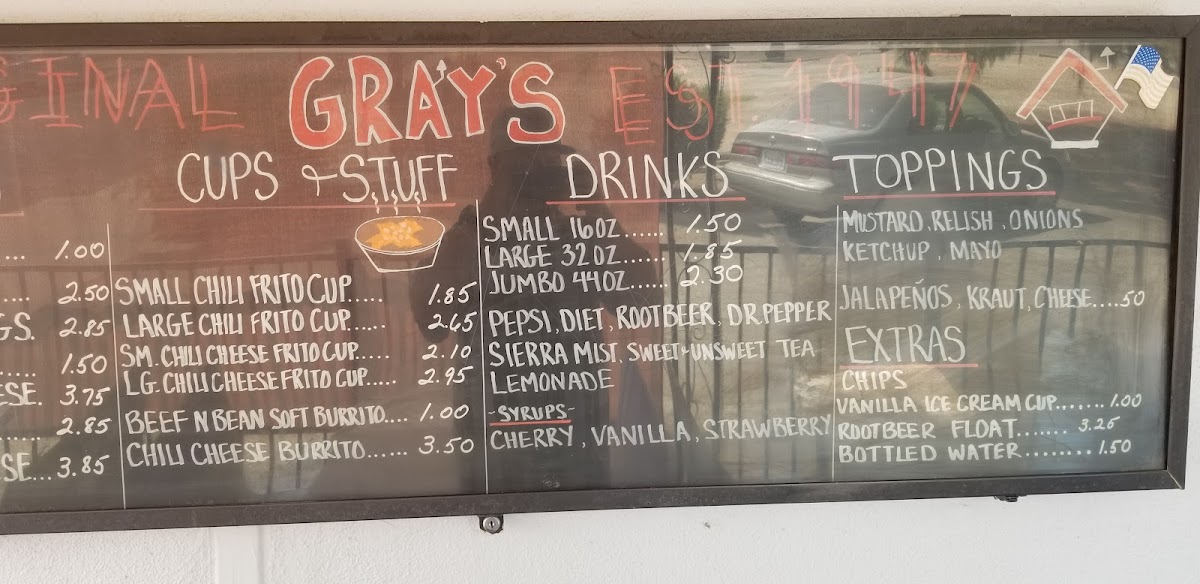 GINAL GRAY'S EST 1947
... 1.00
..... 2.50
GS. 2.85
..... 1.50
ESE. 3.75
..... 2.85
SE... 3.85
CUPS & STUFF
SMALL CHILI FRITO CUP..... 1.85
LARGE CHILI FRITO CUP...... 2.65
SM. CHILI CHEESE FRITO CUP..... 2.10
LG. CHILI CHEESE FRITO CUP..... 2.95
BEEF N BEAN SOFT BURRITO.... 1.00
CHILI CHEESE BURRITO...... 3.50
DRINKS
SMALL 16 OZ...... 1.50
LARGE 32 OZ...... 1.85
JUMBO 44 OZ...... 2.30
PEPSI, DIET, ROOTBEER, DR. PEPPER
SIERRA MIST, SWEET & UNSWEET TEA
LEMONADE
-SYRUPS-
CHERRY, VANILLA, STRAWBERRY
TOPPINGS
MUSTARD, RELISH, ONIONS
KETCHUP, MAYO
JALAPEÑOS, KRAUT, CHEESE....50
EXTRAS
CHIPS
VANILLA ICE CREAM CUP....... 1.00
ROOTBEER FLOAT....... 3.25
BOTTLED WATER........ 1.50